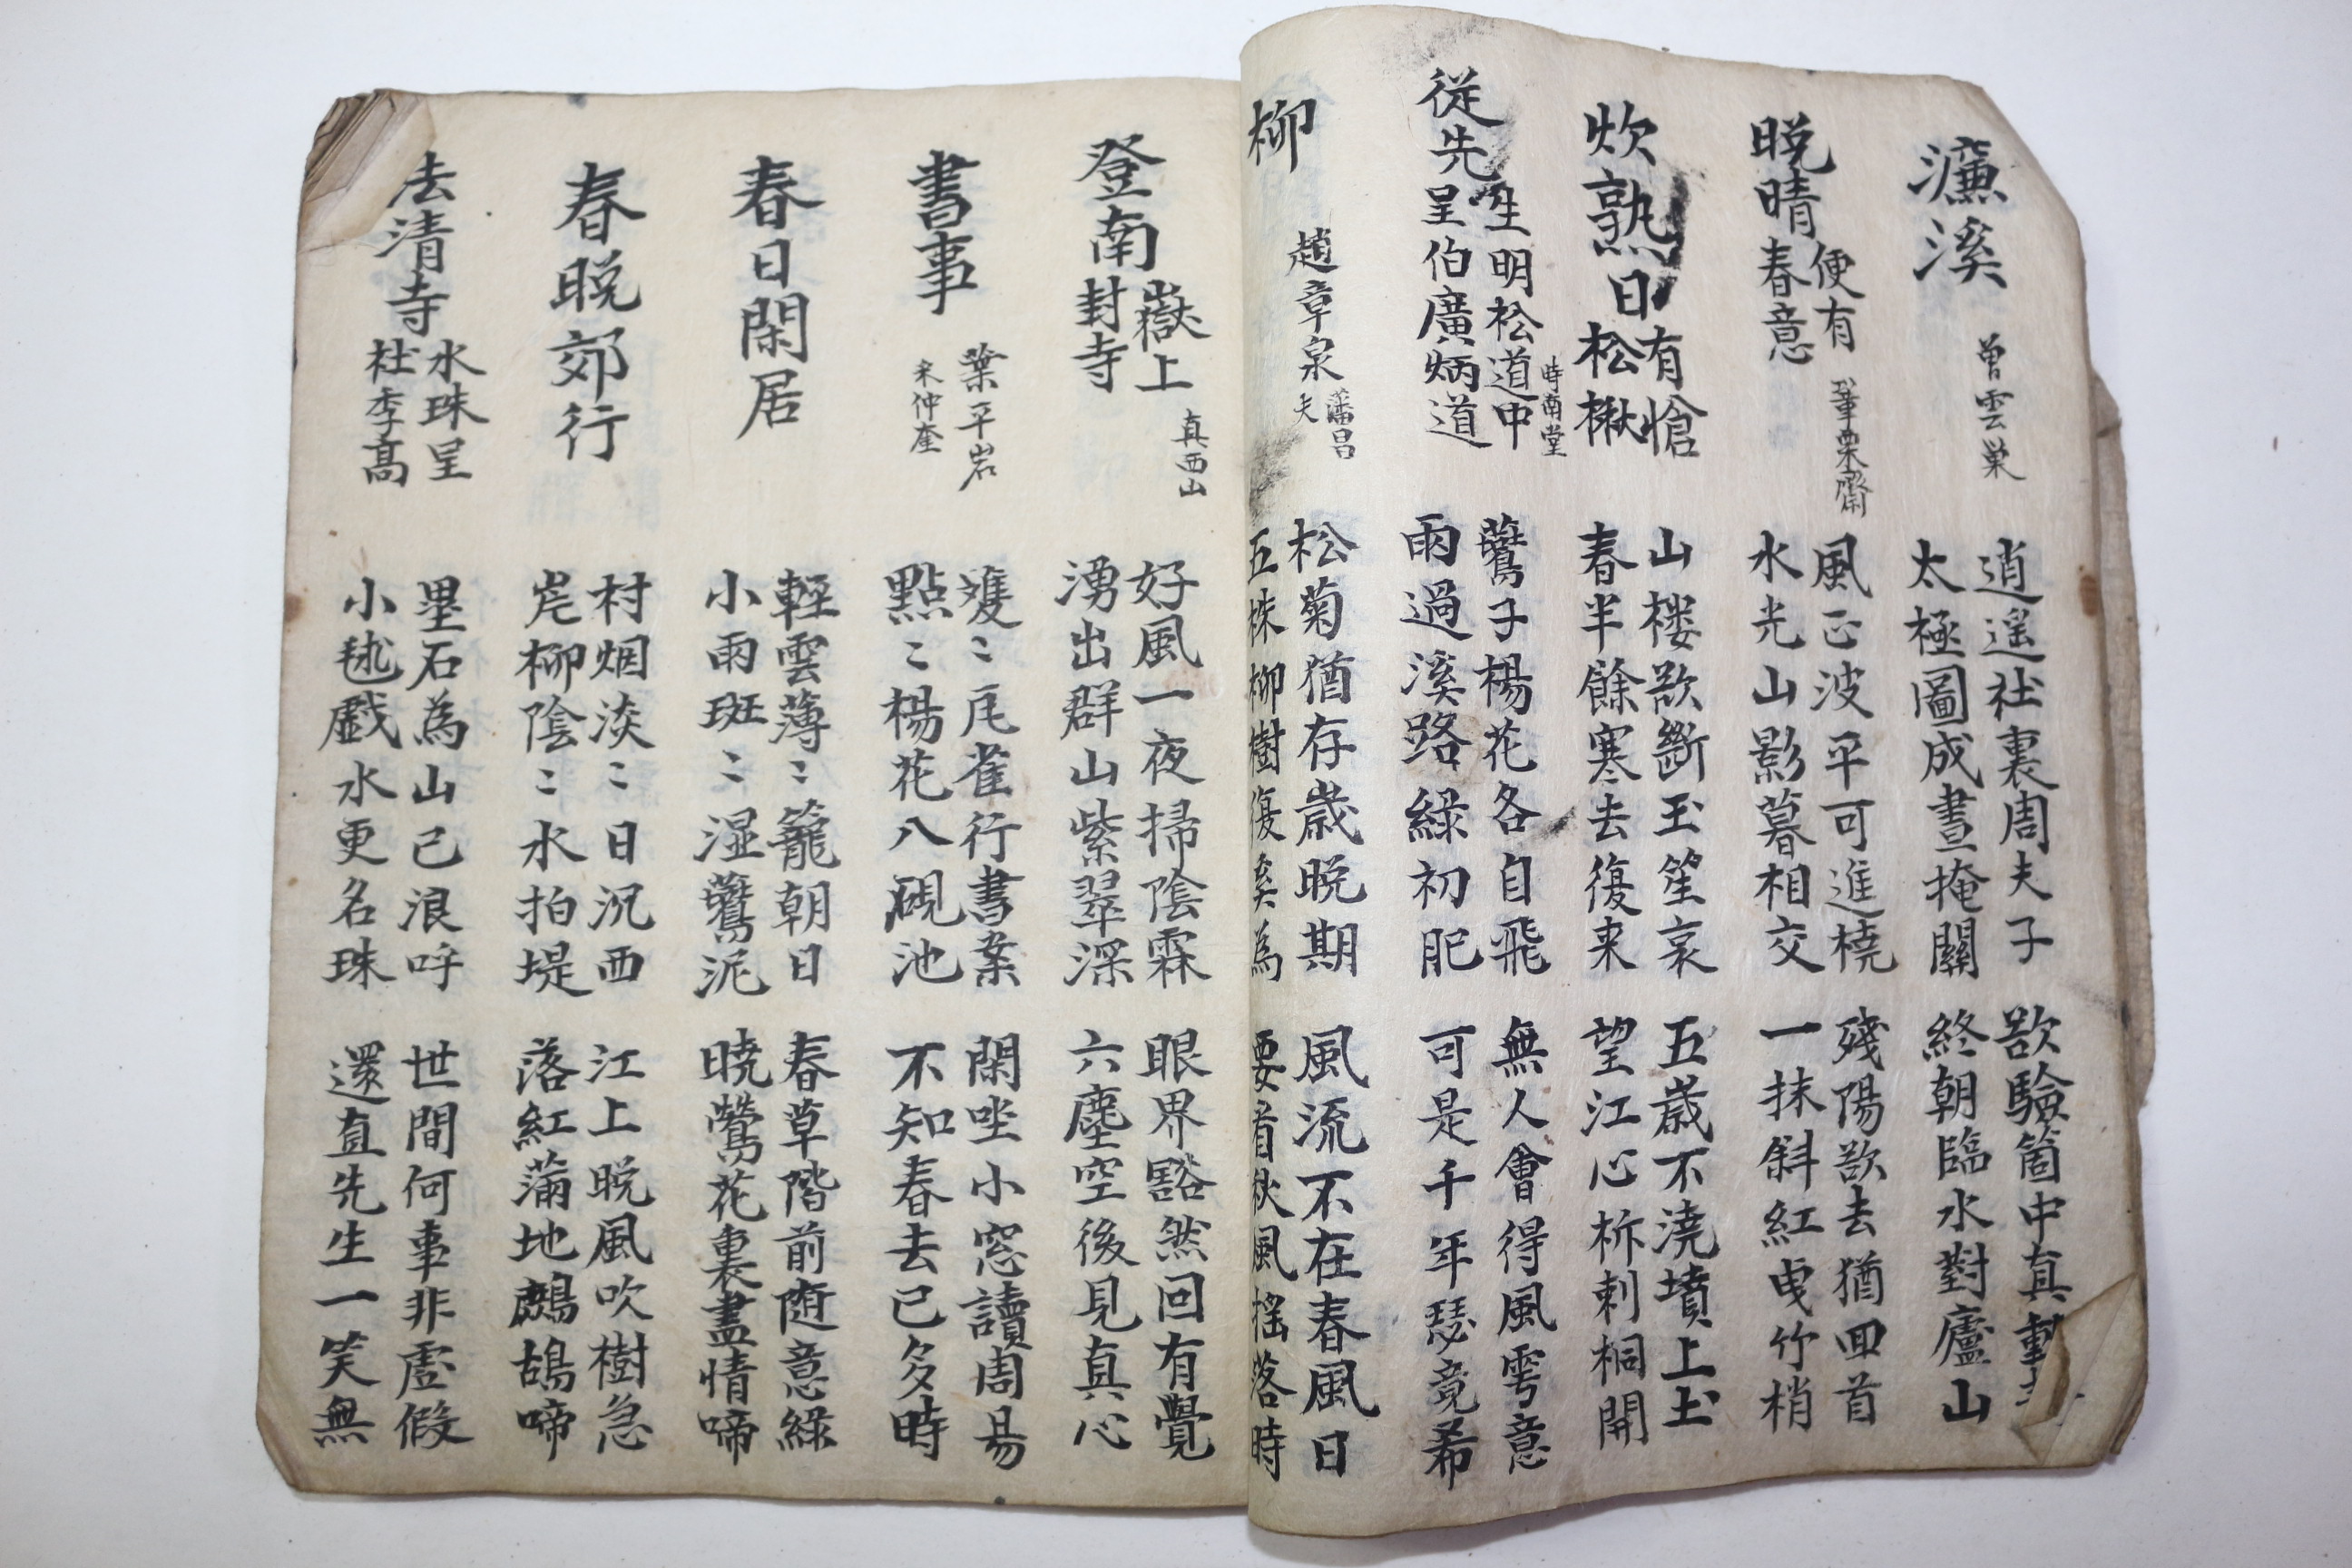 濂溪 曾雲巢
逍遥社裏周夫子 欲驗箇中真動
太極圖成晝掩關 終朝臨水對廬山
晩晴 便有春意 鞏栗齋
風正波平可進橈 殘陽欲去猶回首
水光山影暮相交 一抹斜紅曳竹梢
炊熟日有愴松楸
山楼欲斷玉笙哀 五歳不澆墳上土
春半餘寒去復来 望江心柝刺桐開
從先生明松道中呈伯廣炳道 時南堂
鶯子楊花各自飛 無人會得風雩意
雨過溪路綠初肥 可是千年瑟竟希
柳 趙章泉 藩昌夫
松菊猶存歳晩期 風流不在春風日
五株柳樹復奚為 要看秋風揺落時
登南嶽上封寺 真西山
好風一夜掃陰霖 眼界豁然回有覺
湧出群山紫翠深 六塵空後見真心
書事 葉平岩 宋仲奎
䨇〻瓦雀行書案 閑坐小窓讀周易
點〻楊花入硯池 不知春去已多時
春日閑居
輕雲薄〻籠朝日 春草階前随意綠
小雨斑〻湿鷰泥 暁鶯花裏盡情啼
春晩郊行
村烟淡〻日沉西 江上晩風吹樹急
岸柳陰〻水拍堤 落紅滿地鷓鴣啼
法清寺水珠呈社季高
壘石為山已浪呼 世間何事非虛假
小毬戯水更名珠 還直先生一笑無